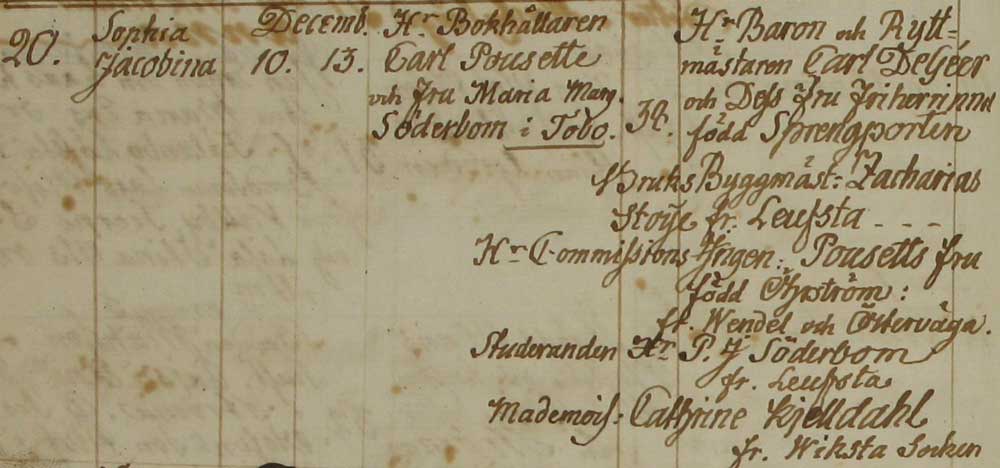 20. Sophia Jacobina
Decemb. 10. 13.
Hr Bokhållaren
Carl Pousette
och Fru Maria Marg.
Söderbom i Tobo.
34.
Hr Baron och Rytt=
mästaren Carl DeGéer
och Dess Fru Friherrinnan
född Sprengporten
Bruks Byggmäst: Zacharias
Stoye fr. Leufsta - - -
Hr Commissions Ingen: Pousetts fru
född Öhrström:
fr. Wendel och Österväga.
Studeranden Hr P. J Söderbom
fr. Leufsta
Mademois: Cathrine Kjelldahl
fr. Wiksta Socken